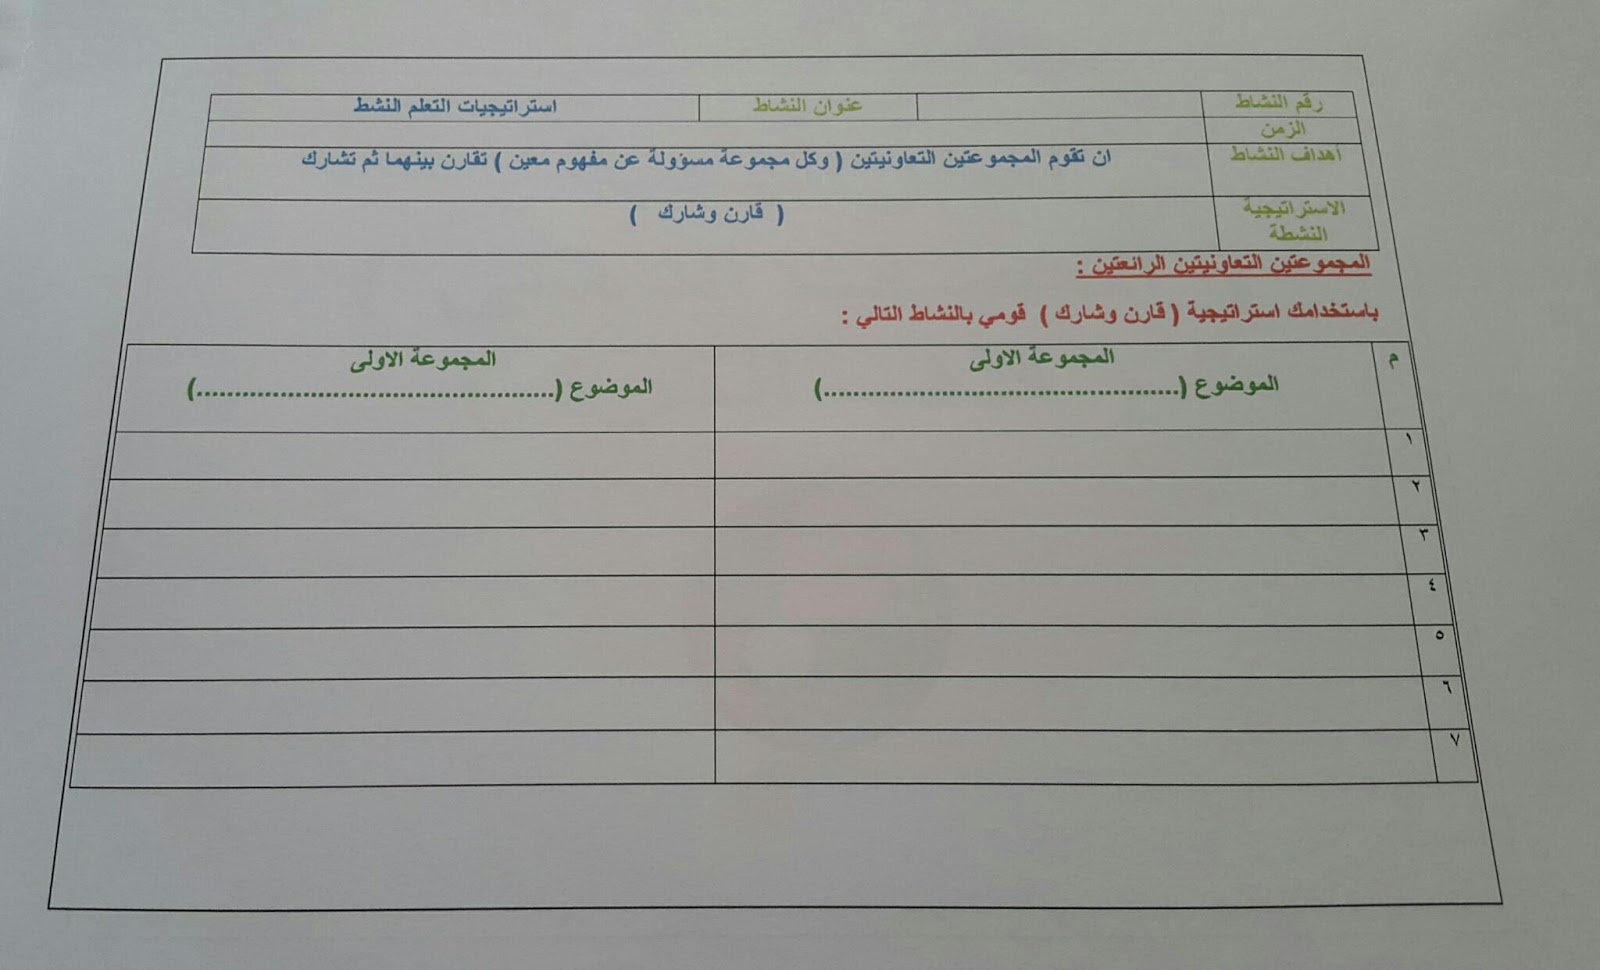 رقم النشاط عنوان النشاط استراتيجيات التعلم النشط
الزمن
أهداف النشاط ان تقوم المجموعتين التعاونيتين ( وكل مجموعة مسؤولة عن مفهوم معين ) تقارن بينهما ثم تشارك
الاستراتيجية ( قارن وشارك )
النشطة
المجموعتين التعاونيتين الرائعتين :
باستخدامك استراتيجية ( قارن وشارك ) قومي بالنشاط التالي :
م المجموعة الاولى المجموعة الاولى
الموضوع (................................................) الموضوع (................................................)
١
٢
٣
٤
٥
٦
٧